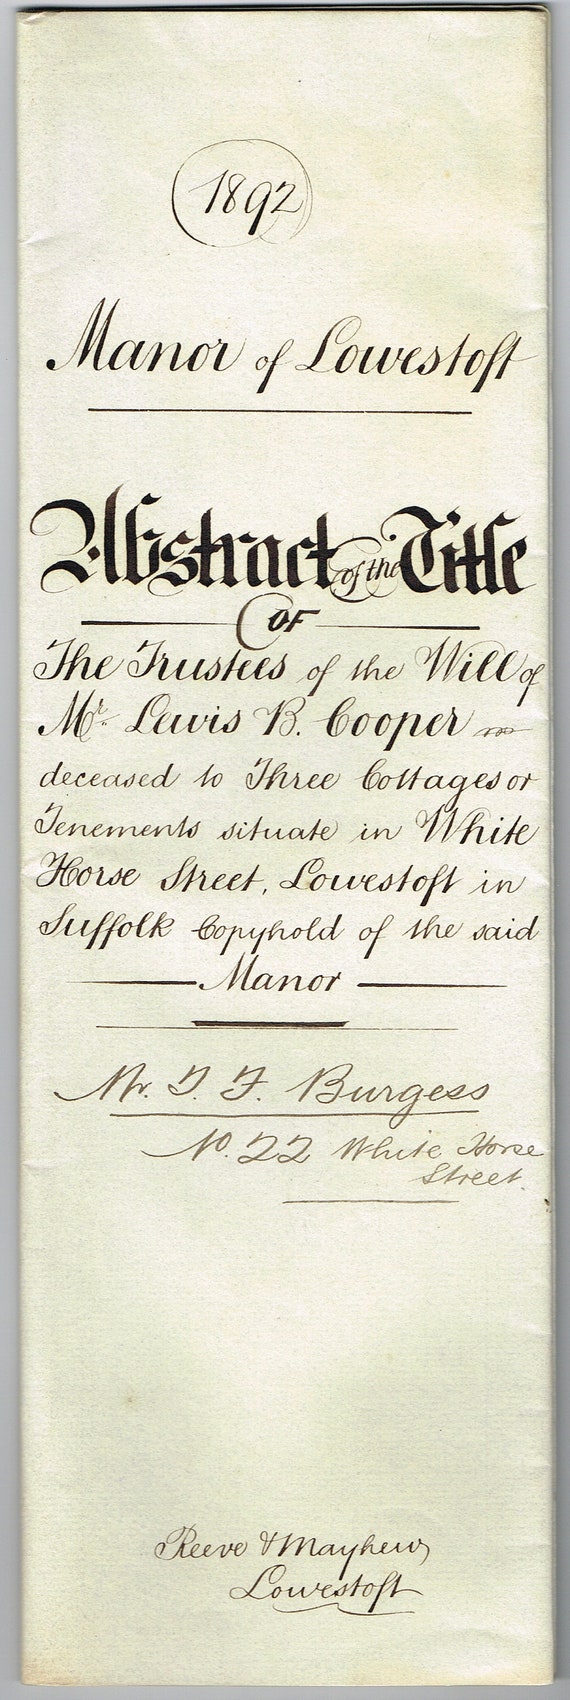 1892
Manor of Lowestoft
Abstract of the Title
OF
The Trustees of the Will of
Mr. Lewis B. Cooper
deceased to Three Cottages or
Tenements situate in White
Horse Street, Lowestoft in
Suffolk Copyhold of the said
Manor
Mr. T. F. Burgess
No. 22 White Horse
Street.
Reeve & Mayhew
Lowestoft